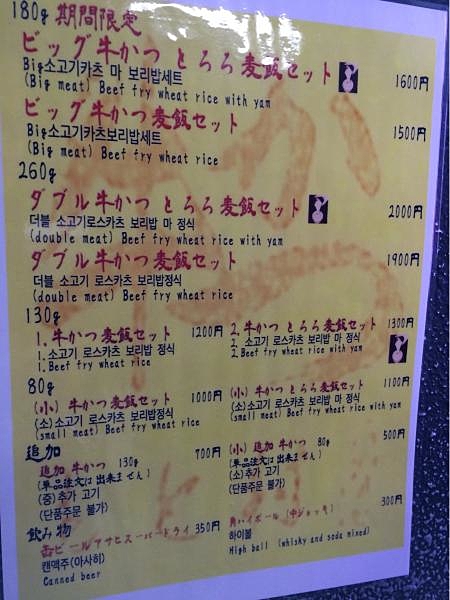 180g 期間限定
ビッグ牛かつ とろろ麦飯セット 1600円
Big소고기카츠 마 보리밥세트
(Big meat) Beef fry wheat rice with yam
ビッグ牛かつ麦飯セット 1500円
Big소고기카츠보리밥세트
(Big meat) Beef fry wheat rice
260g
ダブル牛かつ とろろ麦飯セット 2000円
더블 소고기로스카츠 보리밥 마 정식
(double meat) Beef fry wheat rice with yam
ダブル牛かつ麦飯セット 1900円
더블 소고기로스카츠 보리밥정식
(double meat) Beef fry wheat rice
130g
1.牛かつ麦飯セット 1200円
1.소고기 로스카츠 보리밥 정식
1.Beef fry wheat rice
2.牛かつ とろろ麦飯セット 1300円
2.소고기 로스카츠 보리밥 마 정식
2.Beef fry wheat rice with yam
80g
(小) 牛かつ麦飯セット 1000円
(소)소고기 로스카츠 보리밥정식
(small meat) Beef fry wheat rice
(小) 牛かつ とろろ麦飯セット 1100円
(소)소고기 로스카츠 보리밥 마 정식
(small meat) Beef fry wheat rice with yam
追加
追加 牛かつ 130g 700円
(単品注文は出来ません)
(중)추가 고기
(단품주문 불가)
(小) 追加 牛かつ 80g 500円
(単品注文は出来ません)
(소)추가 고기
(단품주문 불가)
飲み物
缶ビールアサヒスーパードライ 350円
캔맥주(아사히)
Canned beer
角ハイボール (中ジョッキ) 300円
하이볼
High ball (whisky and soda mixed)